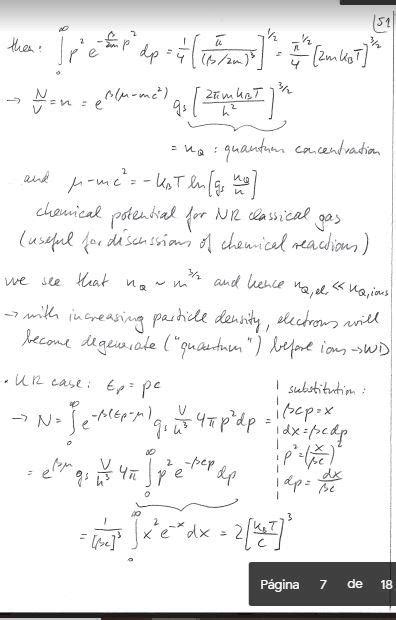 51
then: ∫₀^∞ p² e^{-β/2m p²} dp = 1/4 [π/(β/2m)³]^{1/2} = π^{1/2}/4 [2mk_BT]^{3/2}
→ N/V = n = e^{β(μ-mc²)} g_s [2πmk_BT/h²]^{3/2}
= n_Q : quantum concentration
and μ-mc² = -k_BT ln[g_s n_Q/n]
chemical potential for NR classical gas
(useful for discussions of chemical reactions)
we see that n_Q ~ m^{3/2} and hence n_{Q,el} << n_{Q,ions}
→ with increasing particle density, electrons will
become degenerate ("quantum") before ions → WD
• UR case: ε_p = pc
→ N = ∫₀^∞ e^{-β(ε_p-μ)} g_s V/h³ 4πp²dp =
= e^{βμ} g_s V/h³ 4π ∫₀^∞ p² e^{-βcp} dp
= 1/[βc]³ ∫₀^∞ x² e^{-x} dx = 2[k_BT/c]³
substitution:
βcp = x
dx = βcdp
p² = (x/βc)²
dp = dx/βc
Página 7 de 18